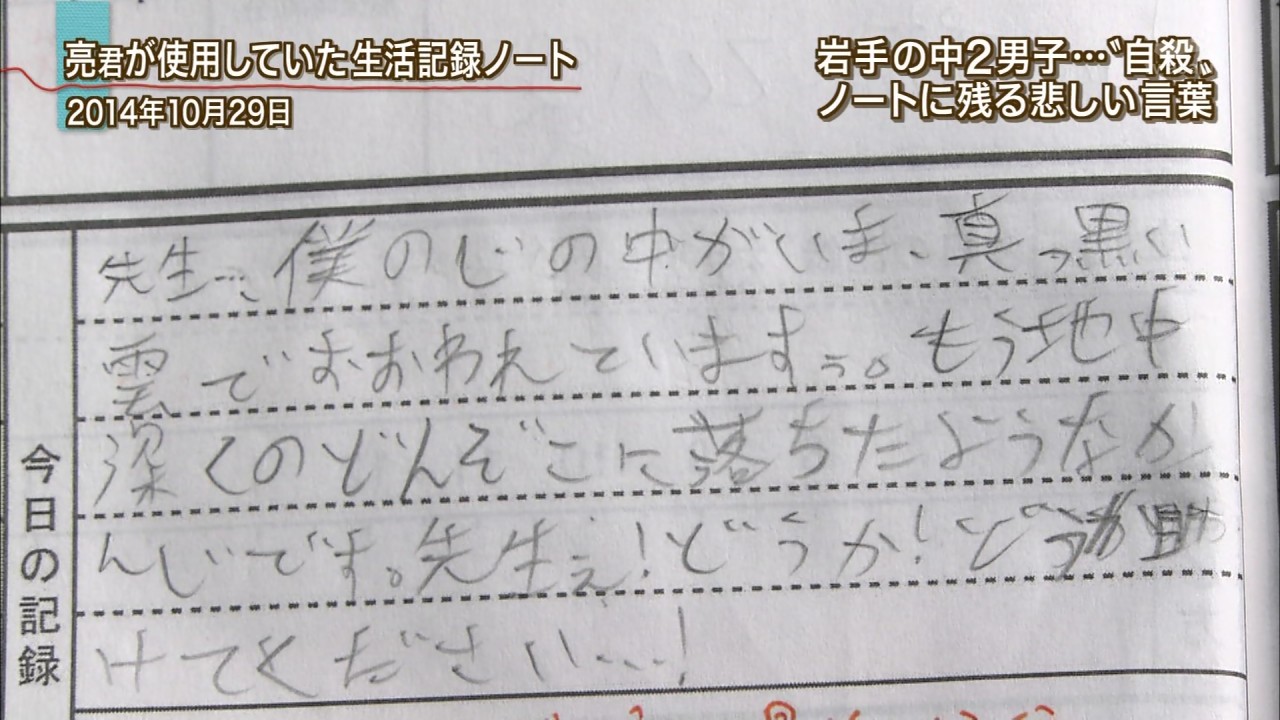 亮君が使用していた生活記録ノート
2014年10月29日
岩手の中2男子…〝自殺〟
ノートに残る悲しい言葉
今日の記録
先生…、僕の心の中がいま、真っ黒い
雲でおおわれています。もう地中
深くのどんぞこに落ちたようなか
んじです。先生ぇ!どうか!どうか助
けてください…!